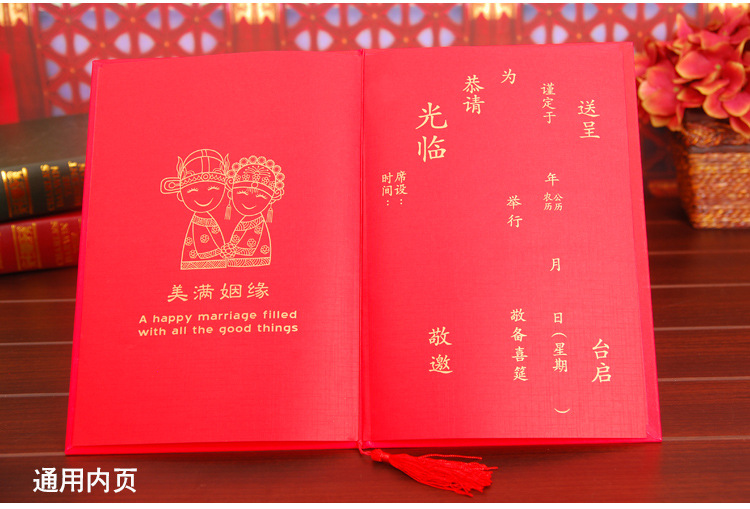 美满姻缘
A happy marriage filled
with all the good things
送呈 台启
谨定于 年 公历 农历 月 日(星期 )
为 举行 敬备喜筵
恭请
光临 敬邀
席设:
时间:
通用内页